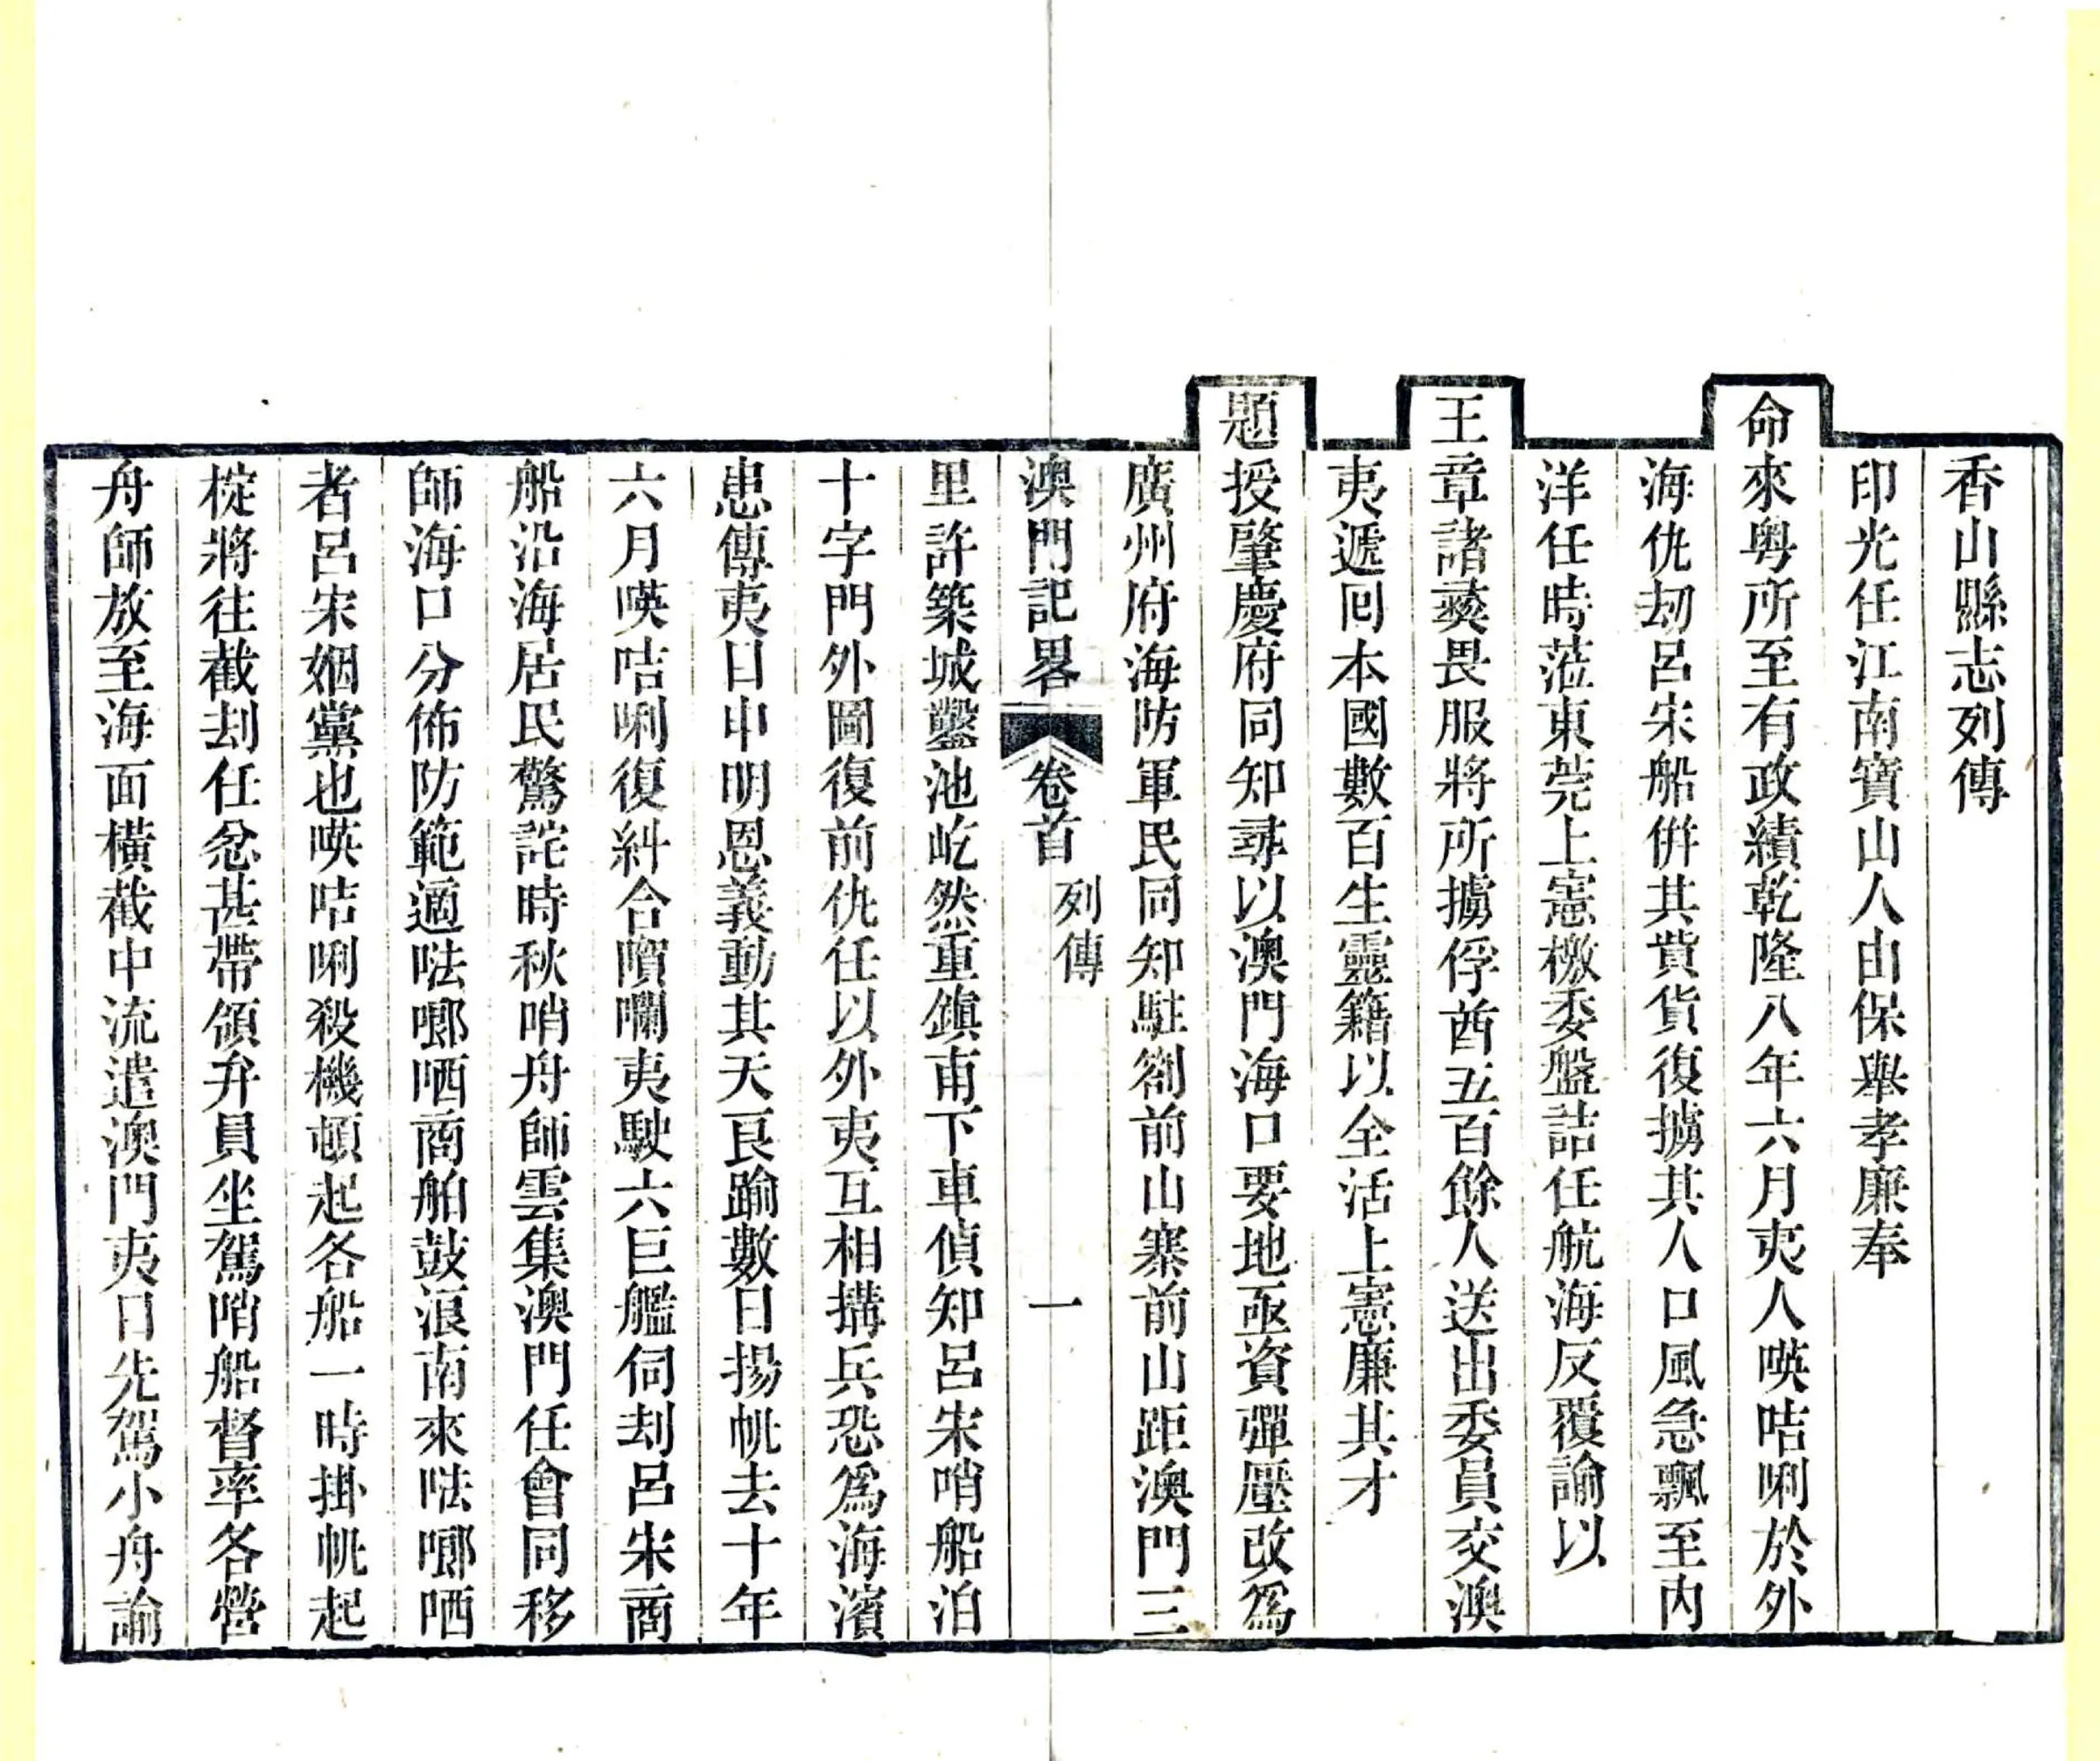 香山縣志列傳
印光任江南寶山人由保舉孝廉奉
命來粵所至有政績乾隆八年六月夷人𠸄咭唎於外
海仇刼呂宋船併其貲貨復擄其人口風急飄至內
洋任時蒞東莞上憲檄委盤詰任航海反覆諭以
王章諸蠻畏服將所擄俘酋五百餘人送出委員交澳
夷遞回本國數百生靈籍以全活上憲廉其才
題授肇慶府同知尋以澳門海口要地亟資彈壓改爲
廣州府海防軍民同知駐劄前山寨前山距澳門三
澳門記畧 卷首 列傳 一
里許築城鑿池屹然重鎮甫下車偵知呂宋哨船泊
十字門外圖復前仇任以外夷互相搆兵恐爲海濱
患傳夷目申明恩義動其天良踰數日揚帆去十年
六月𠸄咭唎復糾合嚝囒夷駛六巨艦伺刦呂宋商
船沿海居民驚詫時秋哨舟師雲集澳門任會同移
師海口分佈防範適呿嘟哂商舶鼓浪南來呿嘟哂
者呂宋姻黨也𠸄咭唎殺機頓起各船一時掛帆起
椗將往截刦任忿甚帶領弁員坐駕哨船督率各營
舟師放至海面橫截中流遣澳門夷目先駕小舟諭